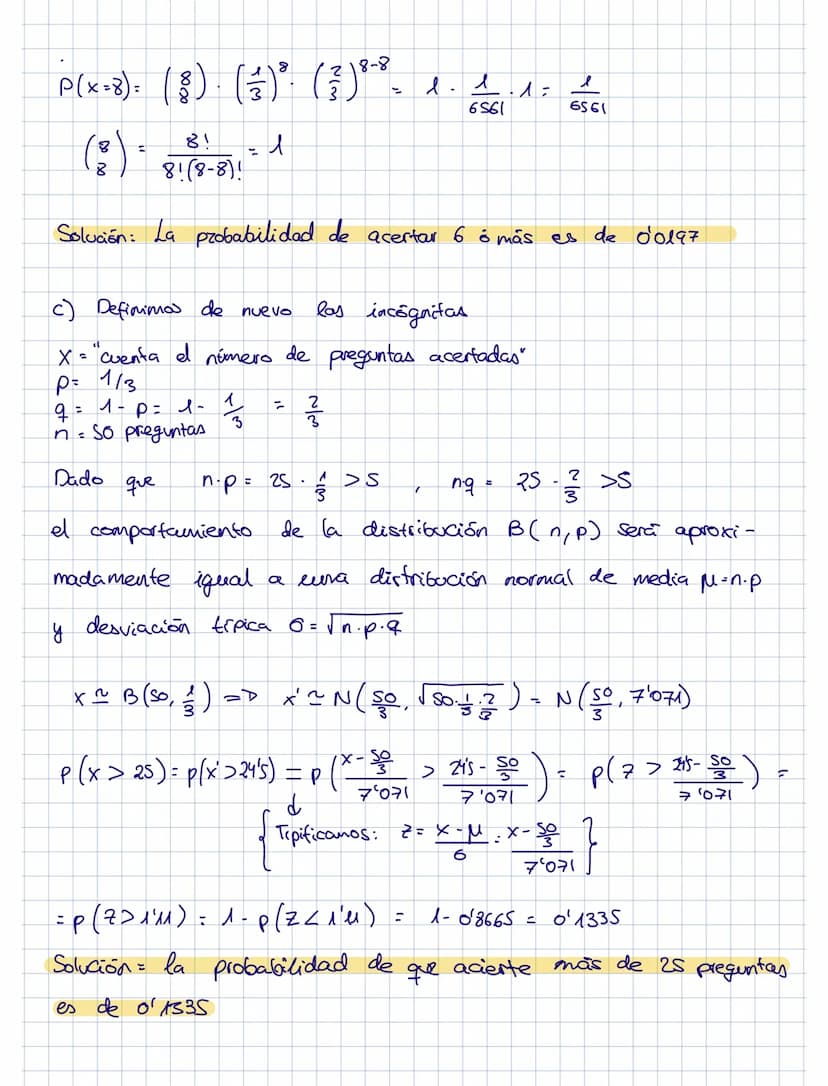 P(x=8) = (8 8) · (1/3)^8 · (2/3)^8-8 = 1 · 1/6561 · 1 = 1/6561
(8 8) = 8!/8!(8-8)! = 1
Solución: La probabilidad de acertar 6 ó más es de 0'0197
c) Definimos de nuevo las incógnitas
X = "cuenta el número de preguntas acertadas"
p = 1/3
q = 1 - p = 1 - 1/3 = 2/3
n = 50 preguntas
Dado que n·p = 25 · 1/3 > 5 , n·q = 25 · 2/3 > 5
el comportamiento de la distribución B(n,p) será aproxi-
madamente igual a una distribución normal de media μ=n·p
y desviación típica σ = √n·p·q
x ≃ B(50, 1/3) => x' ≃ N(50/3, √50·1/3·2/3) = N(50/3, 7'071)
P(x > 25) = p(x' > 24'5) = p(x - 50/3 / 7'071 > 24'5 - 50/3 / 7'071) = p(z > 24'5 - 50/3 / 7'071) =
{Tipificamos: z = x - μ / σ = x - 50/3 / 7'071}
= p(z > 1'11) = 1 - p(z < 1'11) = 1 - 0'8665 = 0'1335
Solución = la probabilidad de que acierte más de 25 preguntas
es de 0'1335